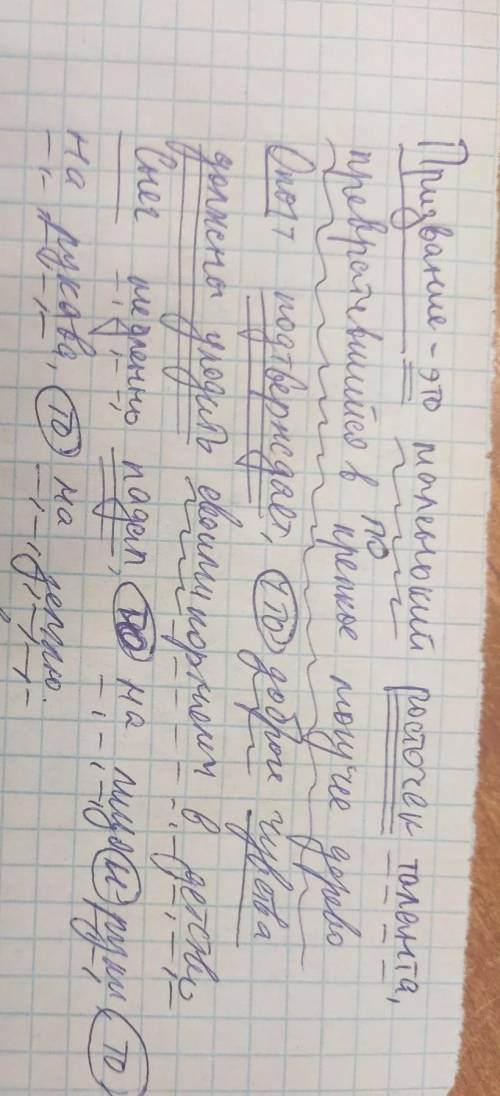 Призвание - это маленький росточек таланта,
превратившийся в крепкое могучее дерево
по
Опыт подтверждает, что добрые чувства
должны уходить своими корнями в детство
Снег медленно падал, то на лицо и руки, то
на рукава, то на землю.